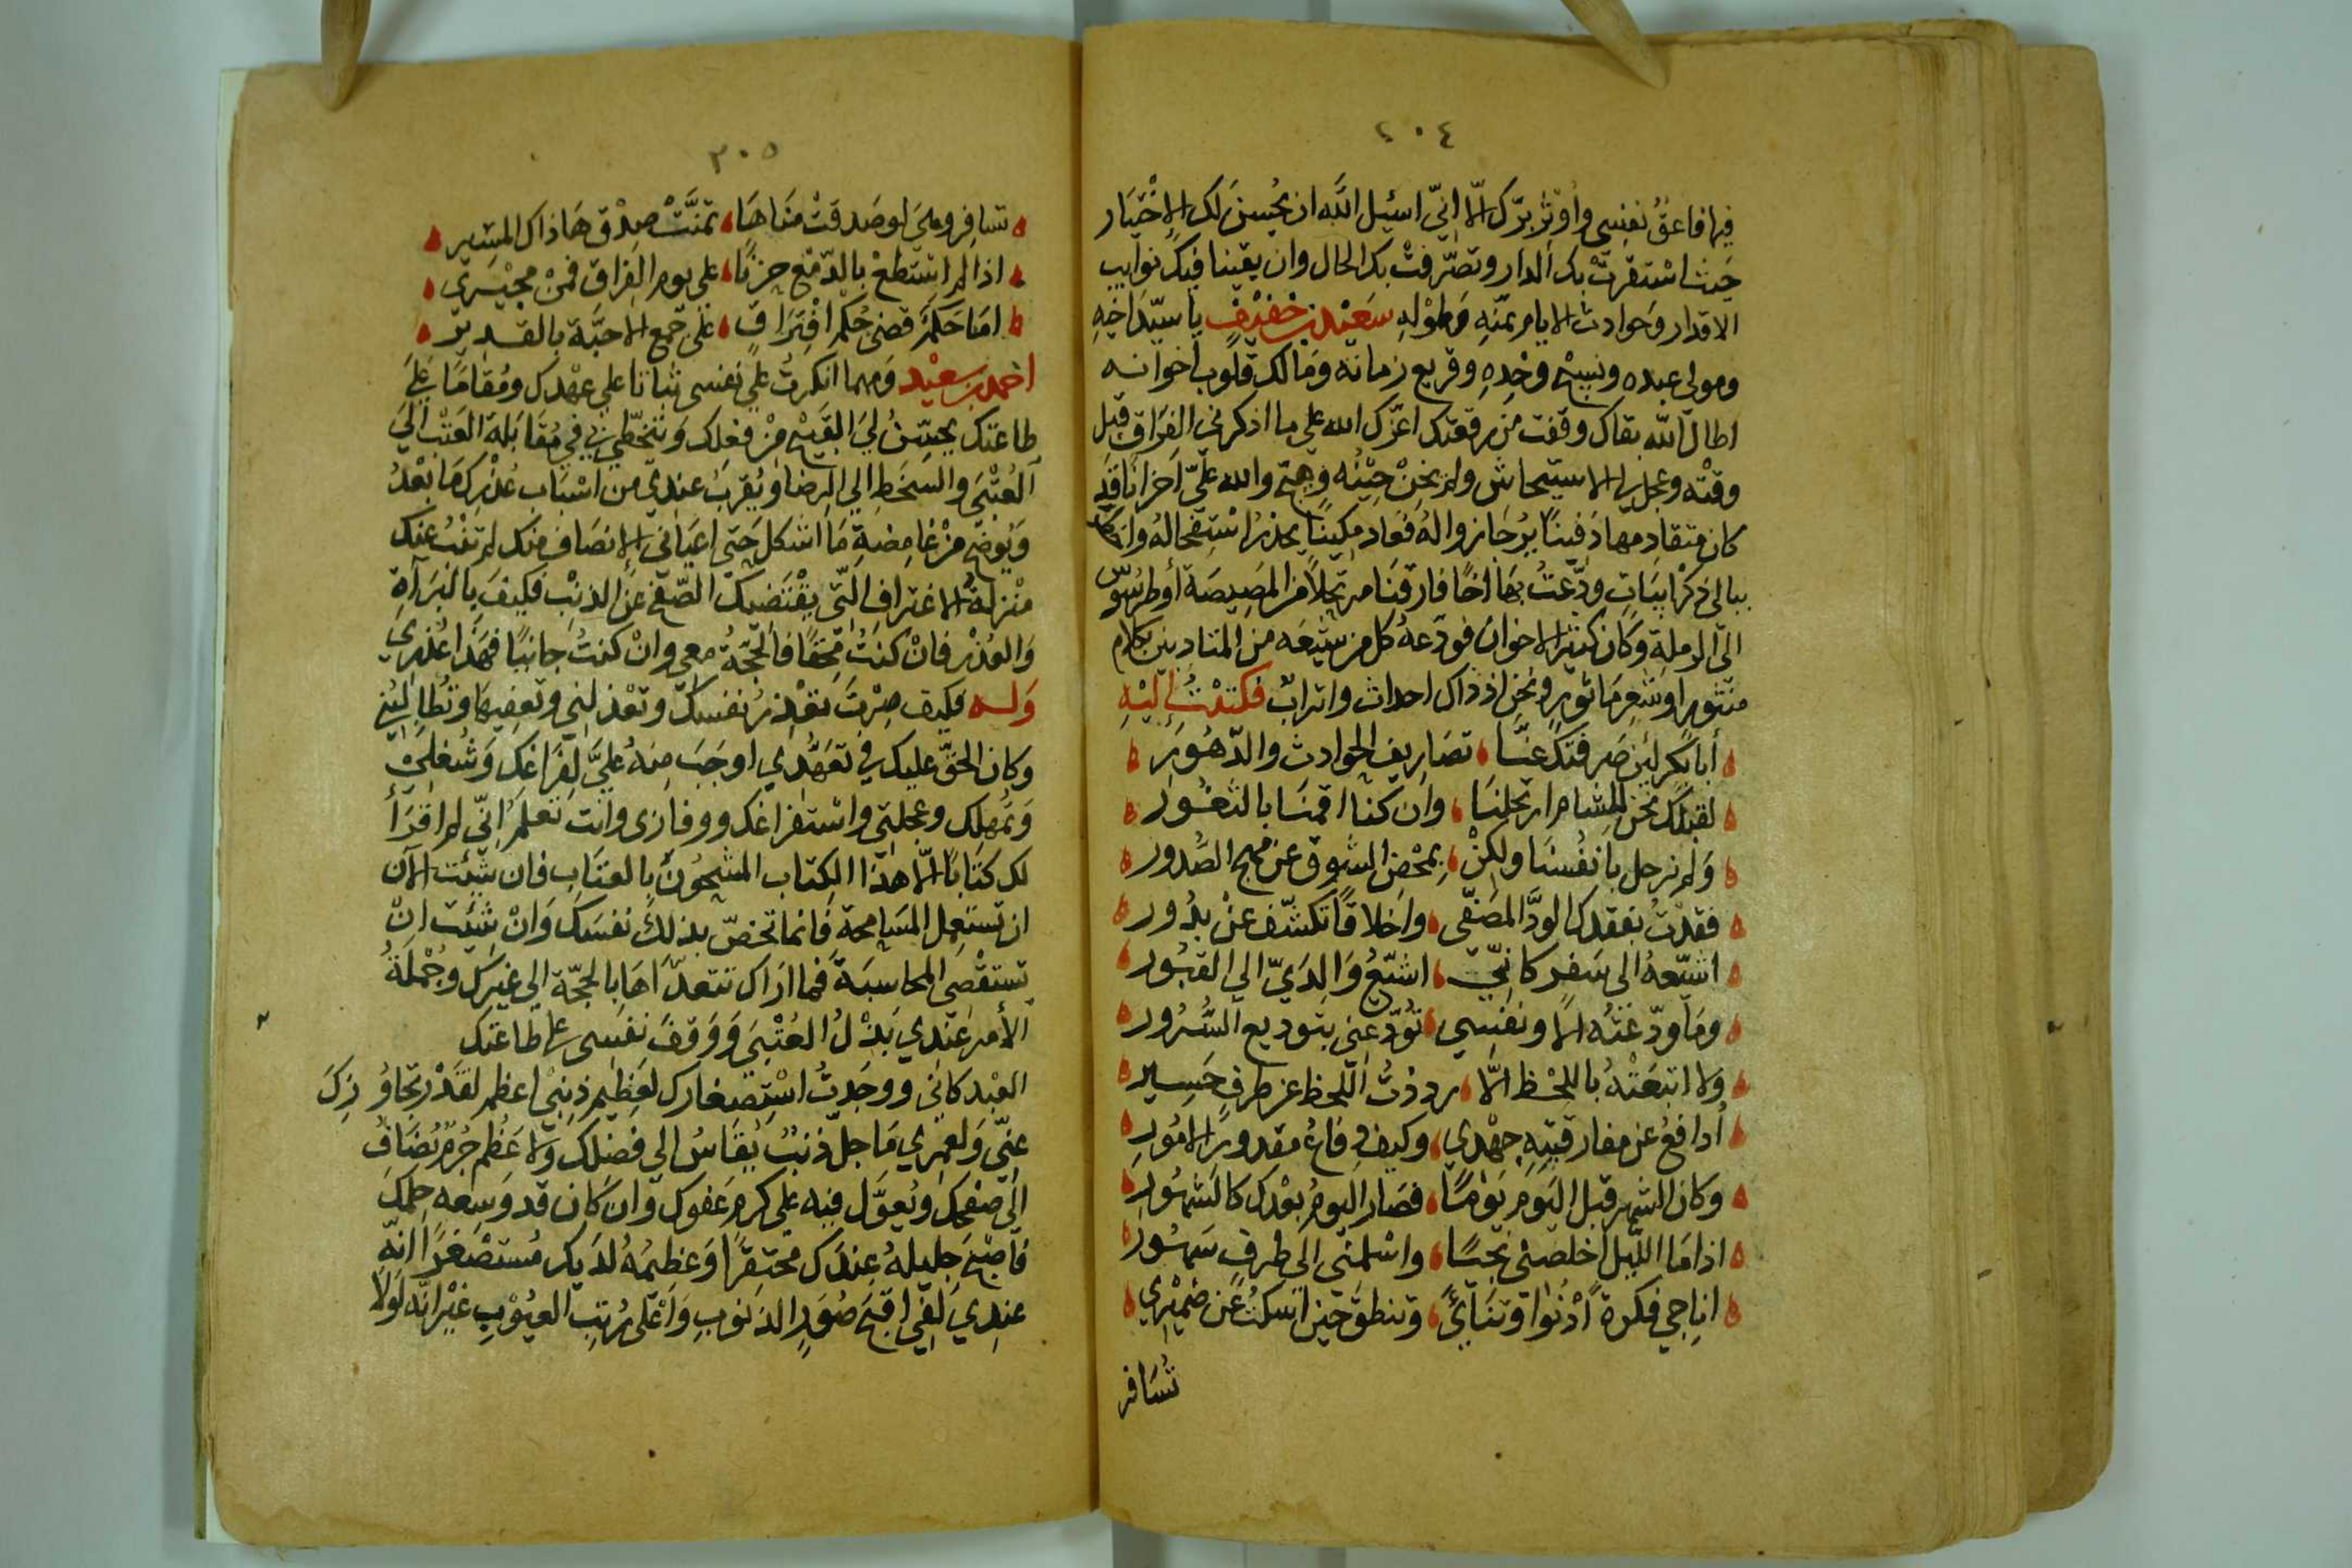 ٢٠٤
فيها فاعق نفسي وأوثر برك الا اني اسئل الله ان يحسن لك الاختيار
حيث استقرت بك الدار وتصرفت بك الحال وان يقينا فيك نوايب
الاقدار وحوادث الايام بمنه وطوله سعيد بن خفيف يا سيد اخيه
ومولى عبده ونسيج وحده وقريع زمانه ومالك قلوب اخوانه
اطال الله بقاك وقفت من رقعتك اعزك الله على ما اذكرني الفراق قبل
وقته وعجل لي الاستيحاش ولم يحن حينه وهيج والله علي احزانا قد
كان متقادمها دفينا يرجا زواله فعاد مكينا يحذر استفحاله
ببالي ذكر ابيات ودعت بها اخا فارقنا مرتحلا من المصيصة أو طرسوس
الى الرملة وكان كثير الاخوان فودعه كل من شيعه من المتادبين بكلام
منثور او شعر ماثور ونحن اذ ذاك احداث واتراب فكتبت إليه
أبا بكر لين صرفتك عنا تصاريف الحوادث والدهور
لقبلك نحن للشام ارتحلنا وان كنا اقمنا بالثغور
ولم نرحل بانفسنا ولكن بمحض الشوق عن مهج الصدور
فقدت بفقدك الود المصفى واخلاقا تكشف عن بدور
اشيعه الى سفر كاني اشيع والدي الى القبور
وما ودعته الا ونفسي تودعني بتوديع السرور
ولا اتبعته باللحظ الا رددت اللحظ عن طرف حسير
أدافع عن مفارقتيه جهدي وكيف دفاع مقدور الامور
وكان الشهر قبل اليوم يوما فصار اليوم بعدك كالشهور
اذا ما الليل اخلصني نجيا واسلمني الى طرف سهور
اناجي فكرة أدنوا وتنائ وتنطق حين اسكت عن ضميري
تسافر
٣٠٥
تسافر وهي لو صدقت مناها تمنت صدق هاذاك المسير
اذا لم استطع بالدمع حزنا على يوم الفراق فمن مجيري
اما حكم قضى حكم افتراق على جمع الاحبة بالقدير
احمد بن سعيد ومهما انكرت علي نفسي ثباتا على عهدك ومقاما على
طاعتك يحسن لي القبيح من فعلك ويتخطى بي في مقابلة العتب الى
العتبى والسخط الى الرضا ويقرب عندي من اسباب عذرك ما بعد
ويوضح من غامضة ما اشكل حتى اعياني الانصاف منك لم تنب عنك
منزلة الاعتراف التي يقتضيك الصفح عن الذنب فكيف بالبراة
والعذر فان كنت محقا فالحجة معي وان كنت جانيا فهذا عذري
وله فكيف صرت تعذر نفسك وتعذلني وتعفيها وتطالبني
وكان الحق عليك في تعهدي اوجب منه علي لفراغك وشغلي
وتمهلك وعجلتي واستفراغك ووفازي وانت تعلم اني لم اقرأ
لك كتابا الا هذا الكتاب المشحون بالعتاب فان شئت الان
ان تستعمل المسامحة فانما تخص بذلك نفسك وان شئت ان
تستقصي المحاسبة فما اراك تتعداها بالحجة الى غيرك وجملة
الأمر عندي بذل العتبى ووقف نفسي على طاعتك
العبدكاني ووجدت استصغارك لعظيم ذنبي اعظم لقدر تجاوزك
عني ولعمري ما جل ذنب يقاس الي فضلك ولا عظم جرم يضاف
الى صفحك ويعول فيه على كرم عفوك وان كان قد وسعه حلمك
فاصبح جليله عندك محتقرا وعظيمه لديك مستصغرا انه
عندي لفي اقبح صور الذنوب واعلى رتب العيوب غير انه لولا